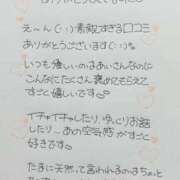 ありがとうございます
え〜ん(;;)素敵すぎる口コミ
ありがとうございます(;;)
いつも優しいのはあいさんなのに
こんなにたくさん褒めてもらえて
すごく嬉しいです。
イチャイチャしたり、ゆっくりお話
したり…あの空気感がすごく
好きです。
たまに天然って言われるのはちょっと